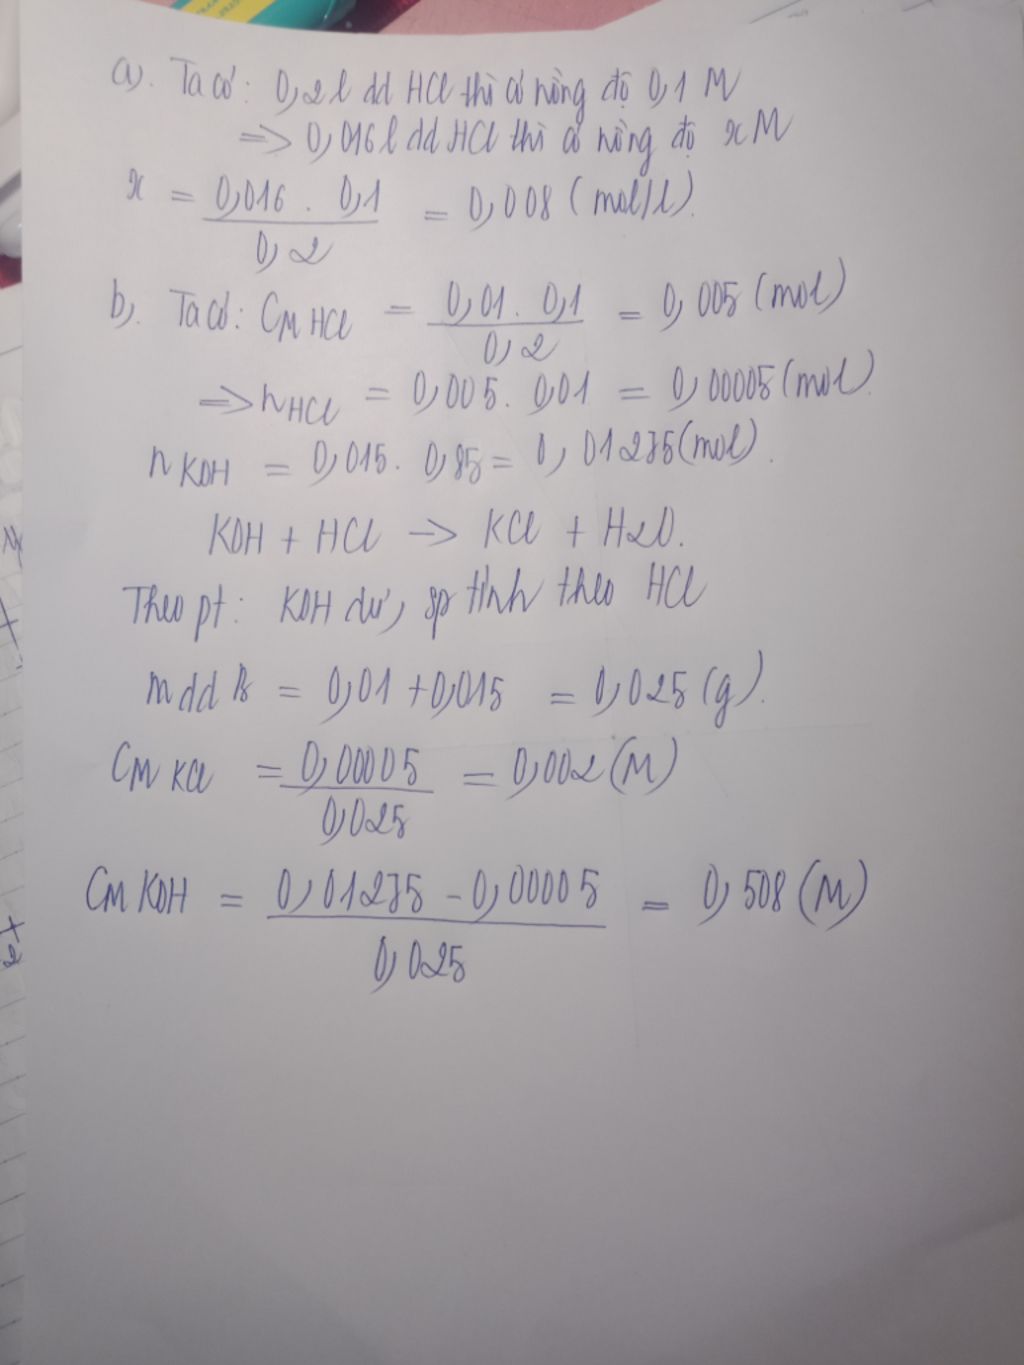 a). Ta có: 0,2 l dd HCl thì có nồng độ 0,1 M
=> 0,016 l dd HCl thì có nồng độ x M
x = 0,016 . 0,1 / 0,2 = 0,008 (mol/l).
b). Ta có: CM HCl = 0,01 . 0,1 / 0,2 = 0,005 (mol)
=> nHCl = 0,005 . 0,01 = 0,00005 (mol).
nKOH = 0,015 . 0,85 = 0,01275 (mol).
KOH + HCl -> KCl + H2O.
Theo pt: KOH dư, sp tính theo HCl
mdd B = 0,01 + 0,015 = 0,025 (g).
CM KCl = 0,00005 / 0,025 = 0,002 (M)
CM KOH = 0,01275 - 0,00005 / 0,025 = 0,508 (M)